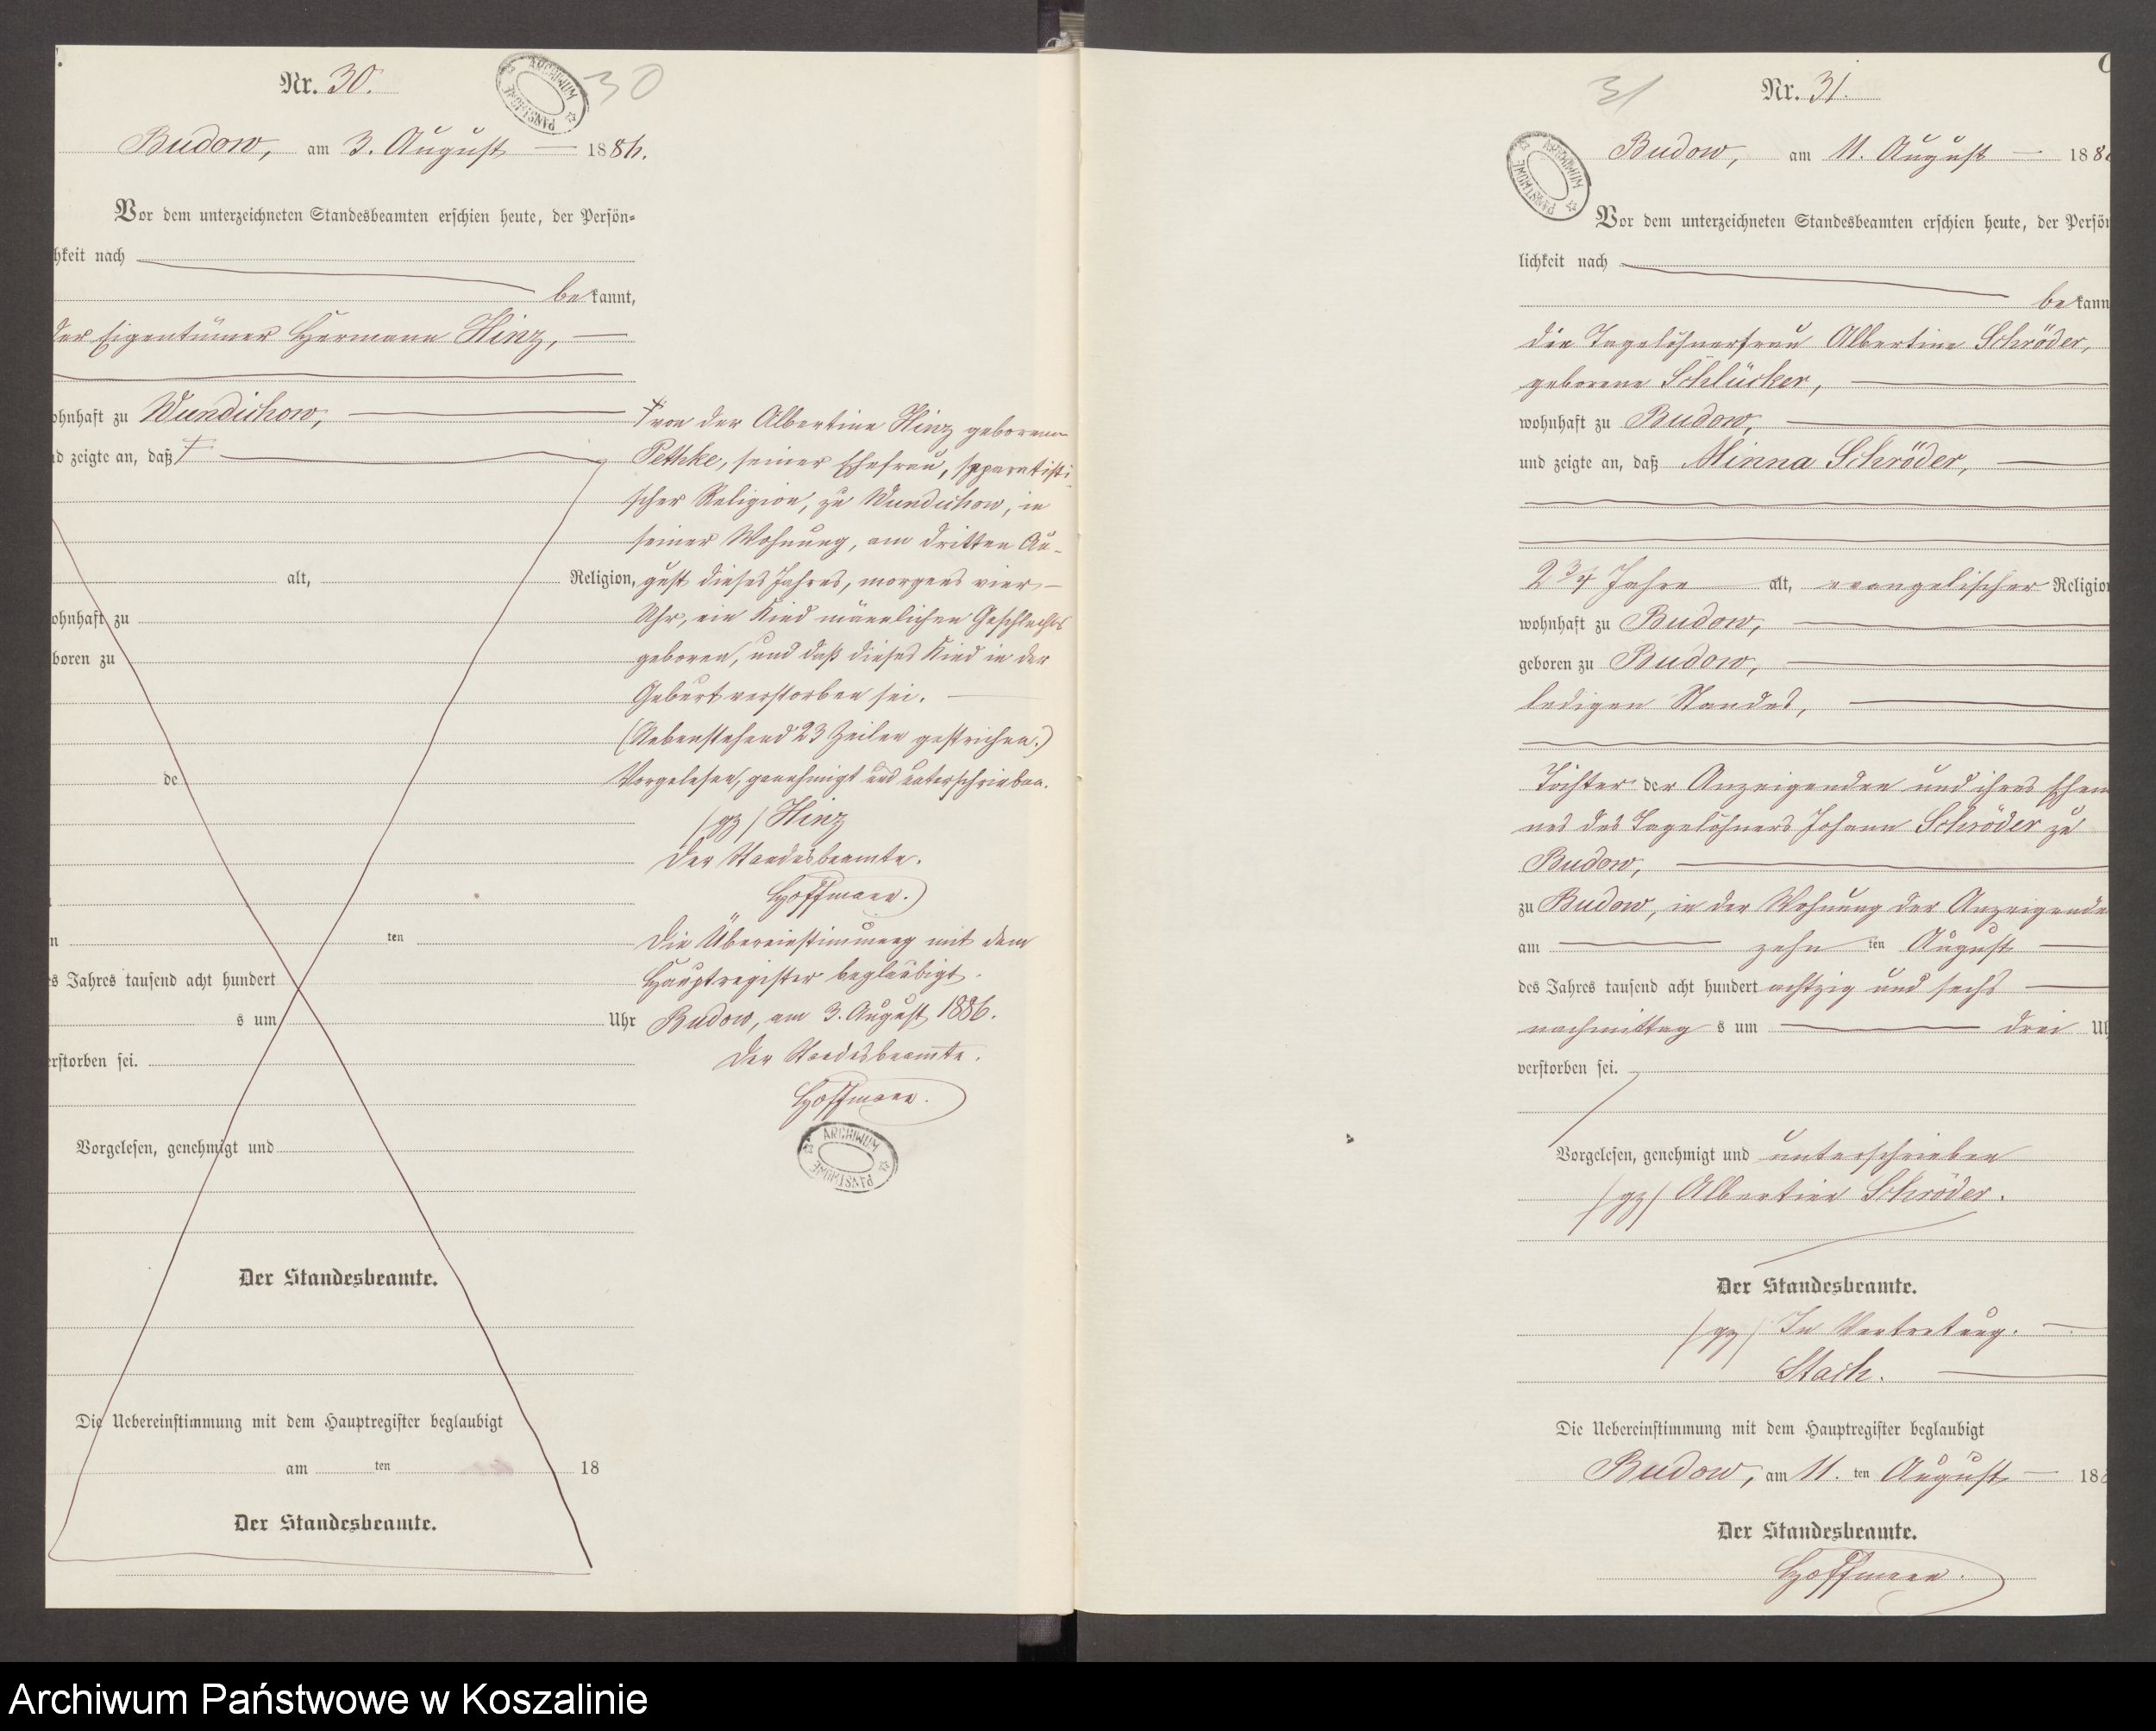 Nr. 30.
30
ARCHIWUM PAŃSTWOWE
Budow, am 3. August 1886.
Vor dem unterzeichneten Standesbeamten erschien heute, der Persön-
hkeit nach
bekannt,
der Eigentümer Hermann Hinz,
ohnhaft zu Wundichow,
d zeigte an, daß
alt, Religion,
ohnhaft zu
boren zu
de
n ten
s Jahres tausend acht hundert
s um Uhr
erstorben sei.
Vorgelesen, genehmigt und
Der Standesbeamte.
Die Uebereinstimmung mit dem Hauptregister beglaubigt
am ten 18
Der Standesbeamte.
von der Albertine Hinz geborenen
Pethke, seiner Ehefrau, separatisti-
scher Religion, zu Wundichow, in
seiner Wohnung, am dritten Au-
gust dieses Jahres, morgens vier
Uhr, ein Kind männlichen Geschlechts
geboren, und daß dieses Kind in der
Geburt verstorben sei.
(Nebenstehend 23 Zeilen gestrichen.)
Vorgelesen, genehmigt und unterschrieben.
/gz/ Hinz
Der Standesbeamte.
Hoffmann.
Die Übereinstimmung mit dem
Hauptregister beglaubigt.
Budow, am 3. August 1886.
Der Standesbeamte.
Hoffmann.
ARCHIWUM PAŃSTWOWE
31
Nr. 31.
ARCHIWUM PAŃSTWOWE
Budow, am 11. August 188
Vor dem unterzeichneten Standesbeamten erschien heute, der Persön
lichkeit nach
bekann
die Tagelöhnerfrau Albertine Schröder,
geborene Schlücker,
wohnhaft zu Budow,
und zeigte an, daß Minna Schröder,
2 3/4 Jahre alt, evangelischer Religion
wohnhaft zu Budow,
geboren zu Budow,
ledigen Standes,
Tochter der Anzeigenden und ihres Ehem
nes des Tagelöhners Johann Schröder zu
Budow,
zu Budow, in der Wohnung der Anzeigende
am zehn ten August
des Jahres tausend acht hundert achtzig und sechs
nachmittag s um drei Uh
verstorben sei.
Vorgelesen, genehmigt und unterschrieben
/gz/ Albertine Schröder.
Der Standesbeamte.
/gz/ In Vertretung.
Stach.
Die Uebereinstimmung mit dem Hauptregister beglaubigt
Budow, am 11. ten August 18
Der Standesbeamte.
Hoffmann.
Archiwum Państwowe w Koszalinie